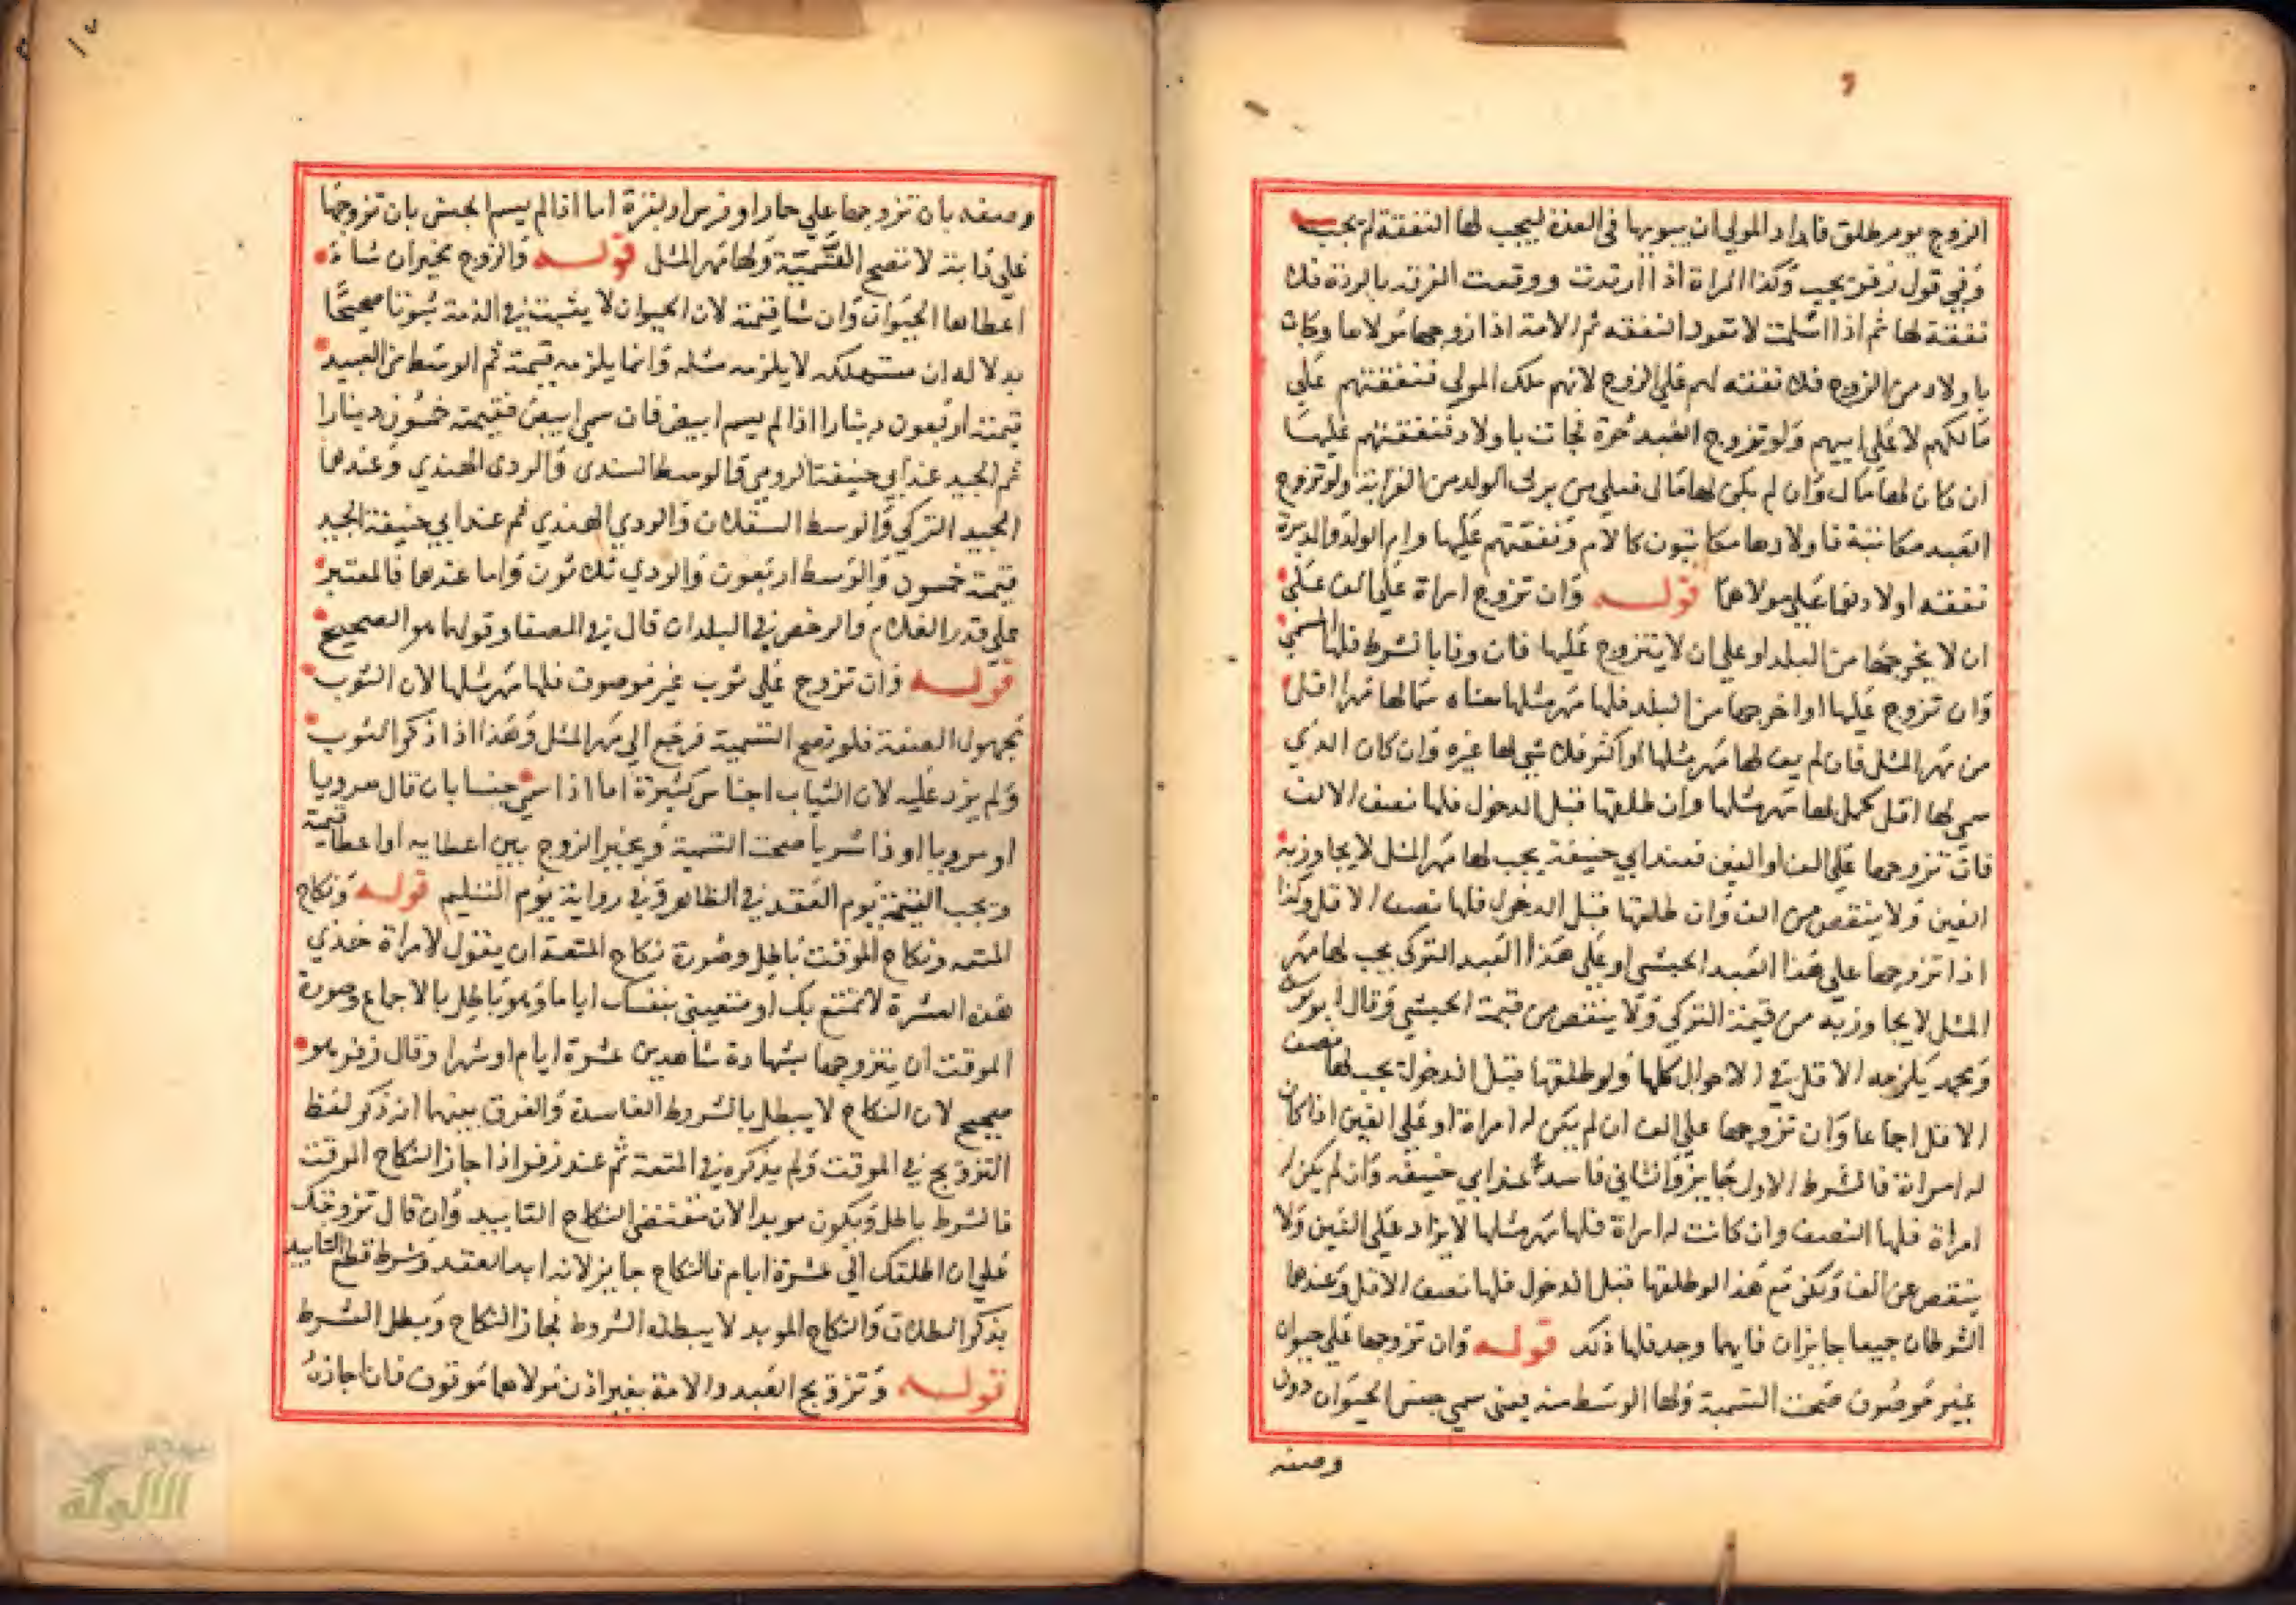 الزوج يوم طلق فاراد المولى ان يبويها في العدة ليجب لها النفقة لم يجب
وفي قول زفر يجب وكذا المراة اذا ارتدت ووقعت الفرقة بالردة فلا
نفقة لها ثم اذا اسلمت لا تعود النفقة ثم الامة اذا زوجها مولاها وجات
باولاد من الزوج فلا نفقة لهم على الزوج لانهم ملك المولى فنفقتهم على
مالكهم لا على ابيهم ولو تزوج العبد حرة فجات باولاد فنفقتهم عليها
ان كان لها مال وان لم يكن لها مال فعلى من يرث الولد من القرابة ولو تزوج
العبد مكاتبة فاولادها مكاتبون كالام ونفقتهم عليها وام الولد والمدبرة
نفقة اولادهما على مولاهما قوله وان تزوج امراة على الف على
ان لا يخرجها من البلد او على ان لا يتزوج عليها فان وفا بالشرط فلها المسمى
وان تزوج عليها او اخرجها من البلد فلها مهر مثلها معناه سمى لها مهرا اقل
من مهر المثل فان لم يف لها مهر مثلها لو اكثر فلا شي لها غيره وان كان الذي
سمى لها اقل كمل لها مهر مثلها وان طلقها قبل الدخول فلها نصف الالف
فان تزوجها على الف او الفين فعند ابي حنيفة يجب لها مهر المثل لا يجاوز به
الفين ولا ينقص من الف وان طلقها قبل الدخول فلها نصف الاقل وكذا
اذا تزوجها على هذا العبد الحبشي او على هذا العبد التركي يجب لها مهر
المثل لا يجاوز به من قيمة التركي ولا ينقص من قيمة الحبشي وقال ابو يوسف
ومحمد يلزمه الاقل في الاحوال كلها ولو طلقها قبل الدخول يجب لها نصف
الاقل اجماعا وان تزوجها على الف ان لم يكن له امراة او على الفين اذا كان
له امراة فالشرط الاول جايز والثاني فاسد عند ابي حنيفة وان لم يكن له
امراة فلها النصف وان كانت له امراة فلها مهر مثلها لا يزاد على الفين ولا
ينقص عن الف ولكن مع هذا لو طلقها قبل الدخول فلها نصف الاقل وعندهما
الشرطان جميعا جايزان فايهما وجد فلها ذلك قوله وان تزوجها على حيوان
غير موصوف صحت التسمية ولها الوسط منه يعنى سمى جنس الحيوان دون
وصفه
وصفه بان تزوجها على حمار او فرس او بقرة اما اذا لم يسم الجنس بان تزوجها
على دابة لا تصح التسمية ولها مهر المثل قوله والزوج مخير ان شاء
اعطاها الحيوان وان شا قيمته لان الحيوان لا يثبت في الذمة ثبوتا صحيحا
بدلاله ان مستهلكه لا يلزمه مثله وانما يلزمه قيمته ثم الوسط من العبيد
قيمته اربعون دينارا اذا لم يسم ابيض فان سمى ابيض فقيمته خمسون دينارا
ثم الجيد عند ابي حنيفة الرومي فالوسط السندى والردى الهندي وعندهما
الجيد التركي والوسط السقلاب والردي الهندي ثم عند ابي حنيفة الجيد
قيمته خمسون والوسط اربعون والردي ثلاثون واما عندهما فالمعتبر
على قدر الغلاء والرخص في البلدان قال في المصفا وقولهما هو الصحيح
قوله وان تزوج على ثوب غير موصوف فلها مهر مثلها لان الثوب
مجهول الصفة فلم تصح التسمية فرجع الى مهر المثل وهذا اذا ذكر الثوب
ولم يزد عليه لان الثياب اجناس كثيرة اما اذا سمى جنسا بان قال هرويا
او مرويا او ذا شريا صحت التسمية ويخير الزوج بين اعطايه او اعطا قيمته
وتجب القيمة يوم العقد في الظاهر وفي رواية يوم التسليم قوله ونكاح
المتعه ونكاح الموقت باطل وصورة نكاح المتعة ان يقول لامراة خذي
هذه العشرة لاتمتع بك او متعيني بنفسك اياما وهو باطل بالاجماع وصورة
الموقت ان يتزوجها بشهادة شاهدين عشرة ايام او شهرا وقال زفر هو
صحيح لان النكاح لا يبطل بالشروط الفاسدة والفرق بينهما انه ذكر لفظ
التزويج في الموقت ولم يذكره في المتعة ثم عند زفر اذا جاز النكاح الموقت
فالشرط باطل ويكون موبدا لان مقتضى النكاح التابيد وان قال تزوجتك
على ان اطلقك الى عشرة ايام فالنكاح جايز لانه ابد العقد وشرط قطع التابيد
بذكر الطلاق والنكاح الموبد لا يبطله الشروط فجاز النكاح وبطل الشرط
قوله وتزويج العبد والامة بغير اذن مولاهما موقوف فان اجازه